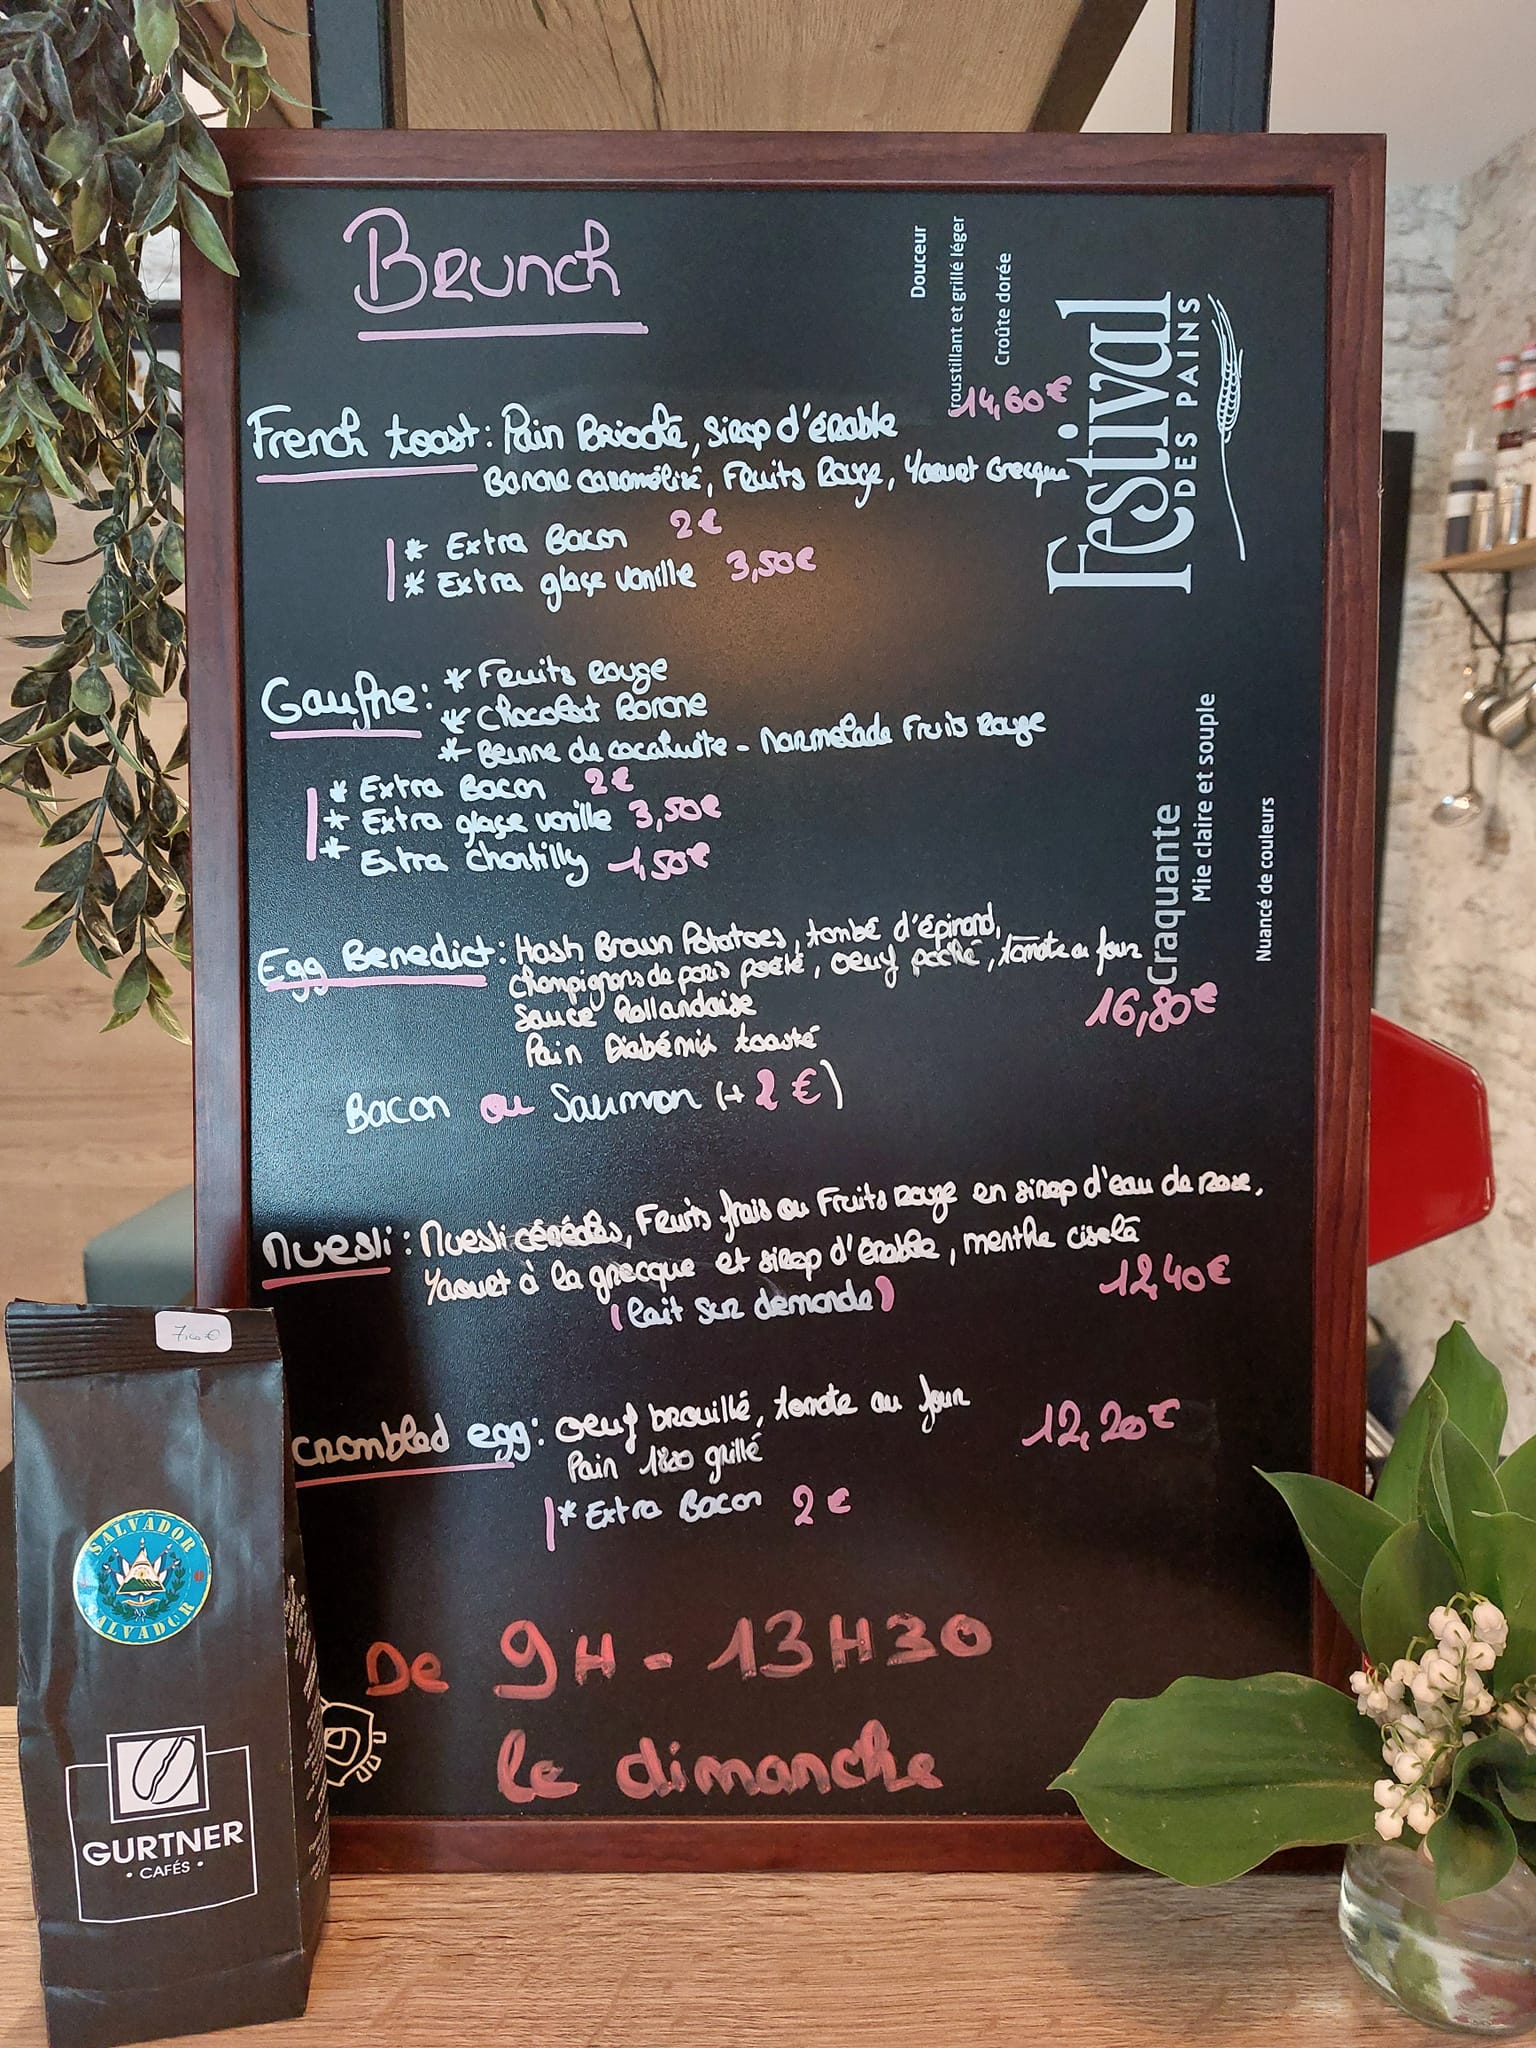 Brunch
Douceur
roustillant et grillé léger
Croûte dorée
Festival
DES PAINS
14,60€
French toast: Pain Brioché, sirop d'érable
Banane caramélisé, Fruits Rouge, Yaourt Grecque
* Extra Bacon 2€
* Extra glaçe vanille 3,50€
Gauffre: * Fruits rouge
* Chocolat Banane
* Beurre de cacahuète - Marmelade Fruits Rouge
* Extra Bacon 2€
* Extra glaçe vanille 3,50€
* Extra Chantilly 1,50€
Craquante
Mie claire et souple
Nuancé de couleurs
Egg Benedict: Hash Brown Potatoes, tombé d'épinard,
champignons de paris poêlé, oeuf poché, tomate au four
Sauce Hollandaise 16,80€
Pain Diabémix toasté
Bacon ou Saumon (+ 2 €)
Muesli: Muesli céréales, Fruits frais ou Fruits rouge en sirop d'eau de rose,
Yaourt à la grecque et sirop d'érable, menthe ciselé
(lait sur demande) 12,40€
Scrambled egg: oeuf brouillé, tomate au four 12,20€
Pain 1820 grillé
* Extra Bacon 2€
De 9H - 13H30
le dimanche
SALVADOR
SALVADOR
GURTNER
• CAFÉS •